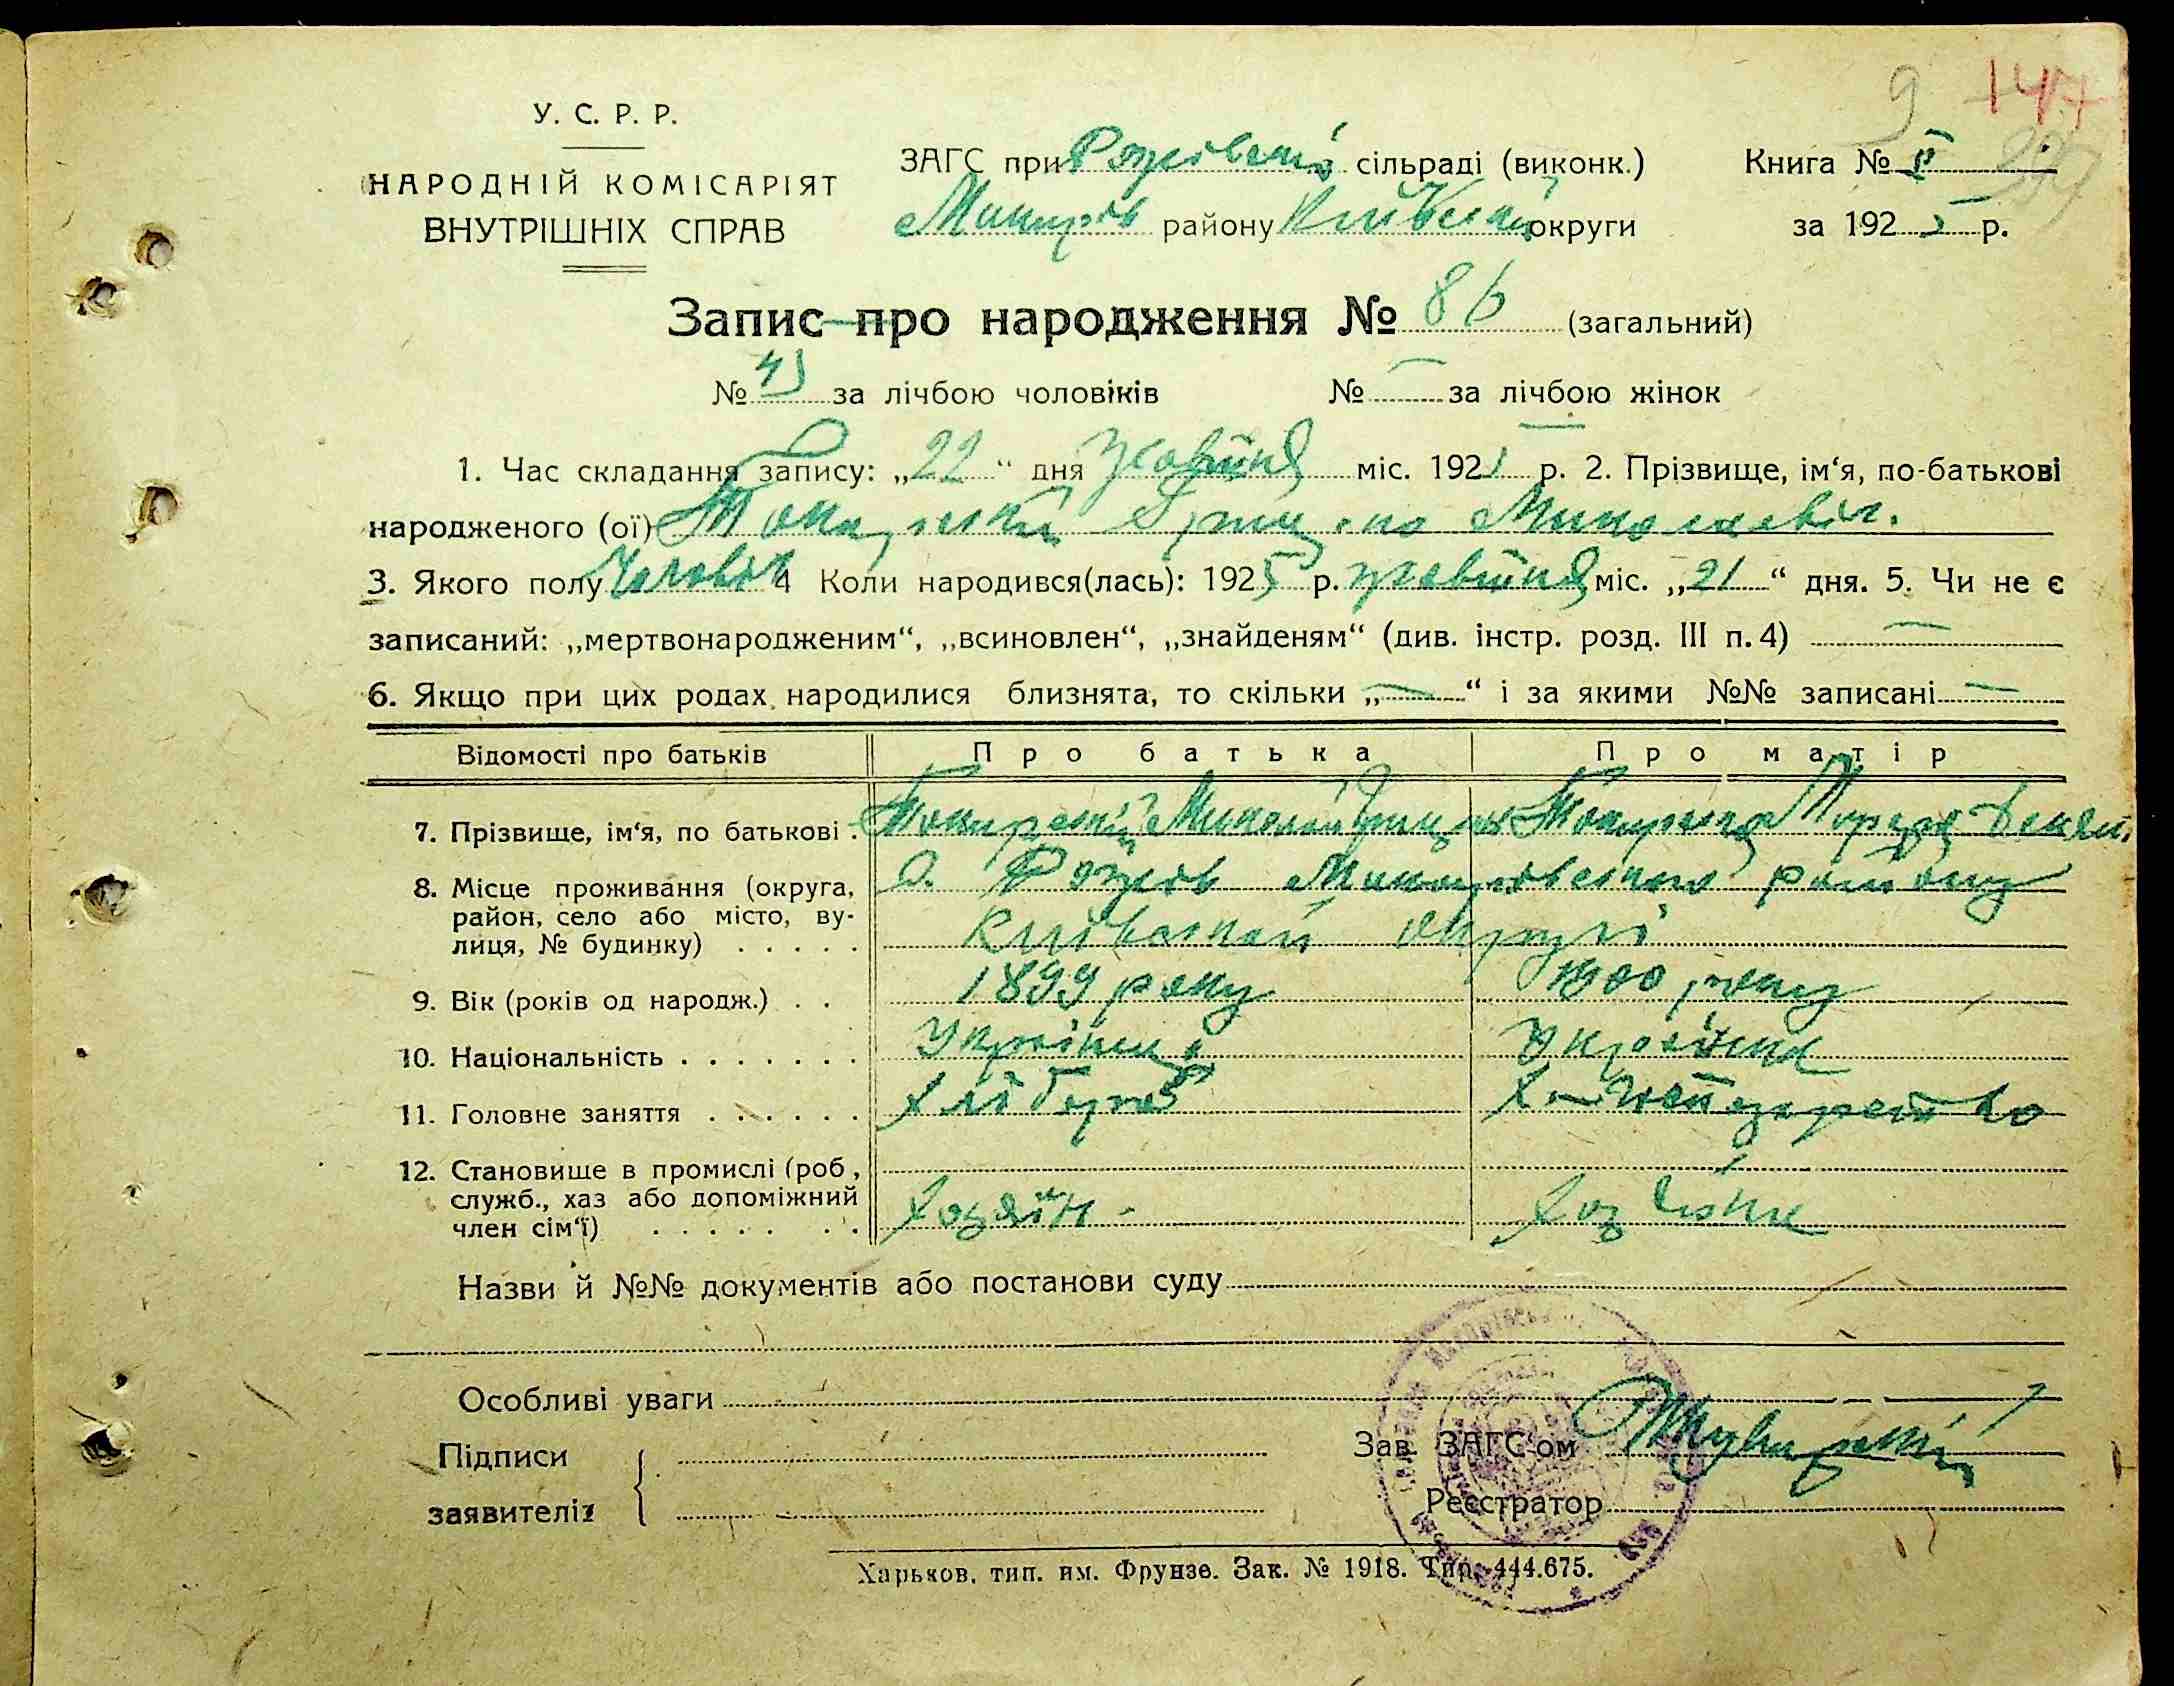 9 147
У. С. Р. Р.
НАРОДНІЙ КОМІСАРІЯТ
ВНУТРІШНІХ СПРАВ
ЗАГС при Рожівській сільраді (виконк.) Книга № II
Макарів району Київської округи за 1925 р.
Запис про народження № 86 (загальний)
№ 45 за лічбою чоловіків № — за лічбою жінок
1. Час складання запису: „22“ дня Жовтня міс. 1925 р. 2. Прізвище, ім‘я, по-батькові
народженого (ої) Миколаєвіч.
3. Якого полу Чоловік 4 Коли народився(лась): 1925 р. жовтня міс. „21“ дня. 5. Чи не є
записаний: „мертвонародженим“, „всиновлен“, „знайденям“ (див. інстр. розд. III п. 4) —
6. Якщо при цих родах народилися близнята, то скільки „—“ і за якими №№ записані —
Відомості про батьків Про батька Про матір
7. Прізвище, ім‘я, по батькові . Миколай
8. Місце проживання (округа, район, село або місто, ву-лиця, № будинку) . . . . . с. Рожів Макарівського району
Київської округи
9. Вік (років од народж.) . . 1899 року 1900 року
10. Національність . . . . . . . Українец Українка
11. Головне заняття . . . . . . Хлібороб
12. Становище в промислі (роб., служб., хаз або допоміжний член сім‘ї) . . . . . . . Хозяїн - Хозяйка
Назви й №№ документів або постанови суду
Особливі уваги
Підписи
заявителів
Зав. ЗАГС‘ом
Реєстратор
Харьков, тип. им. Фрунзе. Зак. № 1918. Тир. 444.675.